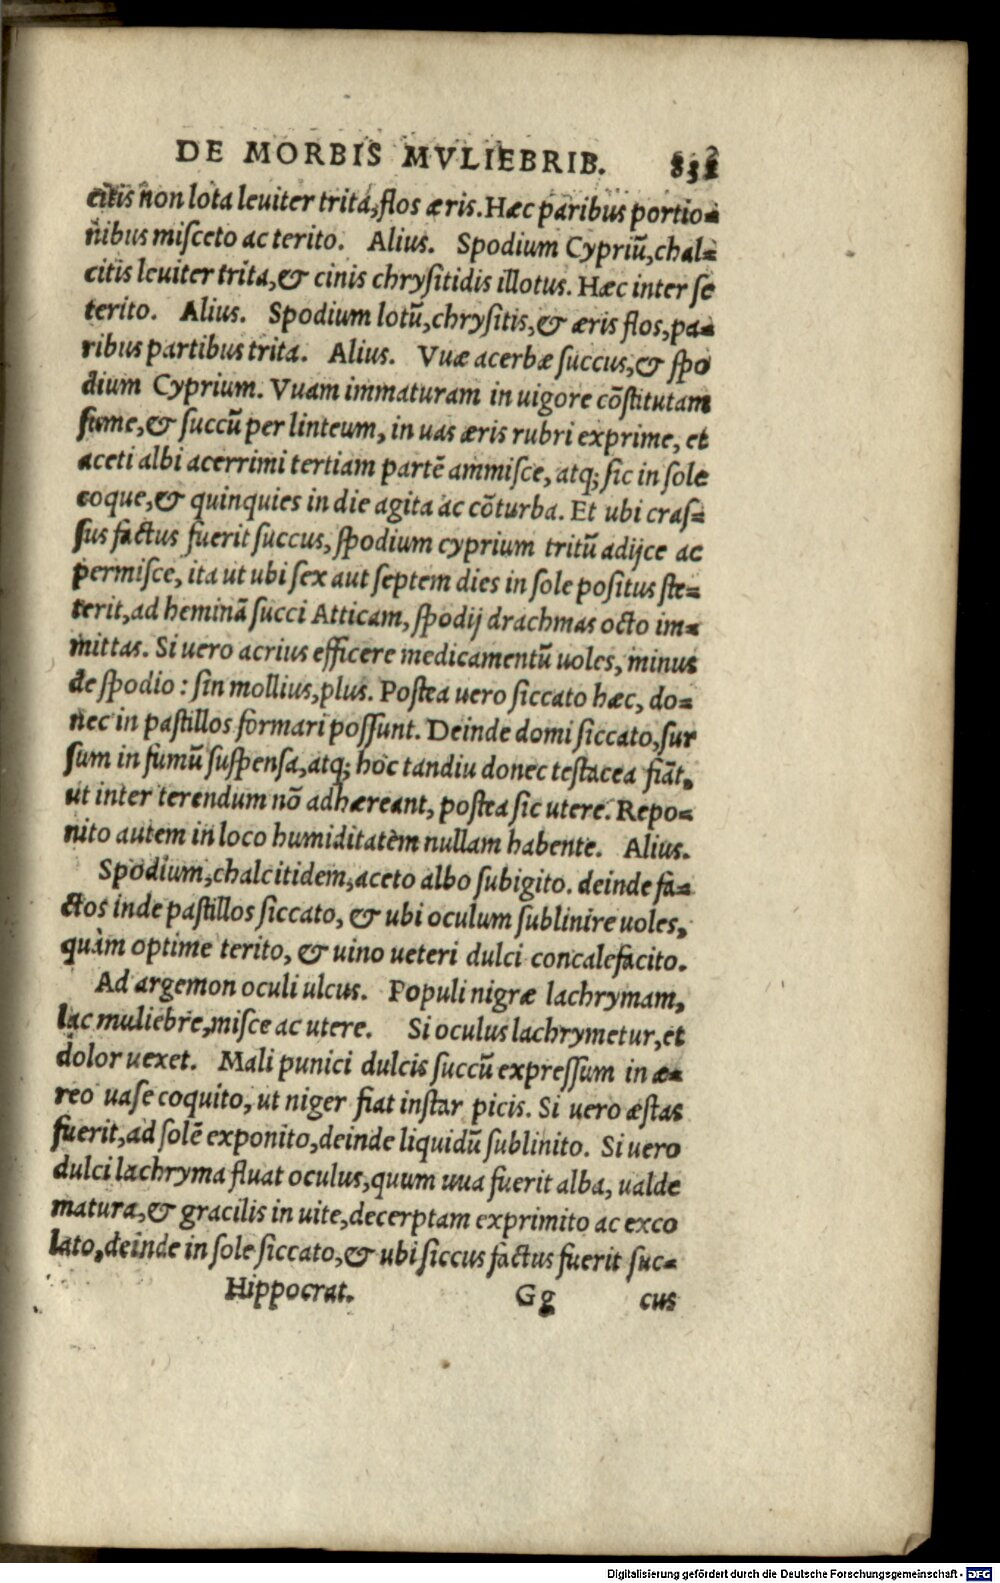 DE MORBIS MVLIEBRIB. 831
citis non lota leuiter trita, flos æris. Hæc paribus portio-
nibus misceto ac terito. Alius. Spodium Cypriũ, chal-
citis leuiter trita, & cinis chrysitidis illotus. Hæc inter se
terito. Alius. Spodium lotũ, chrysitis, & æris flos, pa-
ribus partibus trita. Alius. Vuæ acerbæ succus, & spo
dium Cyprium. Vuam immaturam in uigore cõstitutam
sume, & succũ per linteum, in uas æris rubri exprime, et
aceti albi acerrimi tertiam partẽ ammisce, atq; sic in sole
coque, & quinquies in die agita ac cõturba. Et ubi cras-
sus factus fuerit succus, spodium cyprium tritũ adijce ac
permisce, ita ut ubi sex aut septem dies in sole positus ste-
terit, ad heminã succi Atticam, spodij drachmas octo im-
mittas. Si uero acrius efficere medicamentũ uoles, minus
de spodio: sin mollius, plus. Postea uero siccato hæc, do-
nec in pastillos formari possunt. Deinde domi siccato, sur
sum in fumũ suspensa, atq; hoc tandiu donec testacea fiãt,
ut inter terendum nõ adhæreant, postea sic utere. Repo-
nito autem in loco humiditatèm nullam habente. Alius.
Spodium, chalcitidem, aceto albo subigito. deinde fa-
ctos inde pastillos siccato, & ubi oculum sublinire uoles,
quàm optime terito, & uino ueteri dulci concalefacito.
Ad argemon oculi ulcus. Populi nigræ lachrymam,
lac muliebre, misce ac utere. Si oculus lachrymetur, et
dolor uexet. Mali punici dulcis succũ expressum in æ-
reo uase coquito, ut niger fiat instar picis. Si uero æstas
fuerit, ad solẽ exponito, deinde liquidũ sublinito. Si uero
dulci lachryma fluat oculus, quum uua fuerit alba, ualde
matura, & gracilis in uite, decerptam exprimito ac exco
lato, deinde in sole siccato, & ubi siccus factus fuerit suc-
Hippocrat. Gg cus
Digitalisierung gefördert durch die Deutsche Forschungsgemeinschaft - DFG